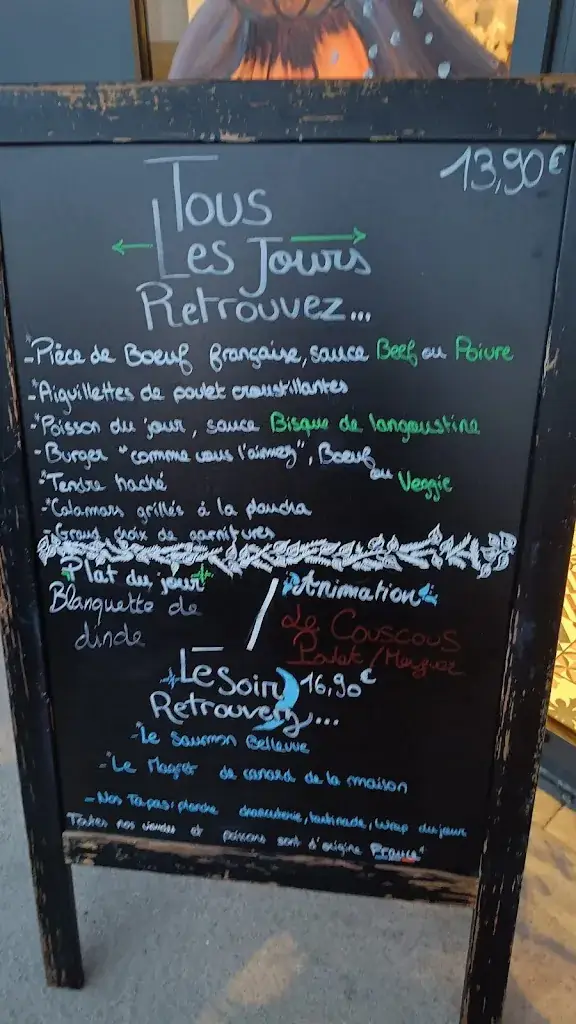 13,90€
Tous
Les Jours
Retrouvez...
-Pièce de Boeuf française, sauce Beef ou Poivre
-Aiguillettes de poulet croustillantes
-Poisson du jour, sauce Bisque de langoustine
-Burger "comme vous l'aimez", Boeuf
ou Veggie
-Tendre haché
-Calamars grillés à la plancha
-Grand choix de garnitures
Plat du jour
Blanquette de
dinde
/
Animation
Le Couscous
Poulet/Merguez
Le Soir 16,90€
Retrouvez...
-Le Saumon Bellevue
-Le Magret de canard de la maison
-Nos Tapas: planche charcuterie, tartinade, Wrap du jour
Toutes nos viandes et poissons sont d'origine France